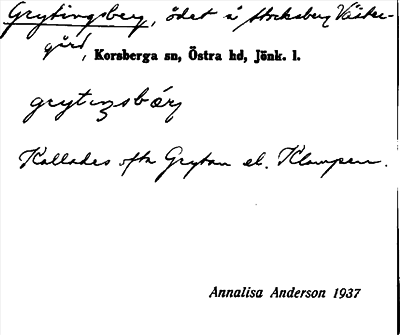 Grytingsberg, ödet å Stocksberg Väster-
gård,
Korsberga sn, Östra hd, Jönk. l.
grytiŋsbærj
Kallades ofta Grytan el. Klampen.
Annalisa Anderson 1937